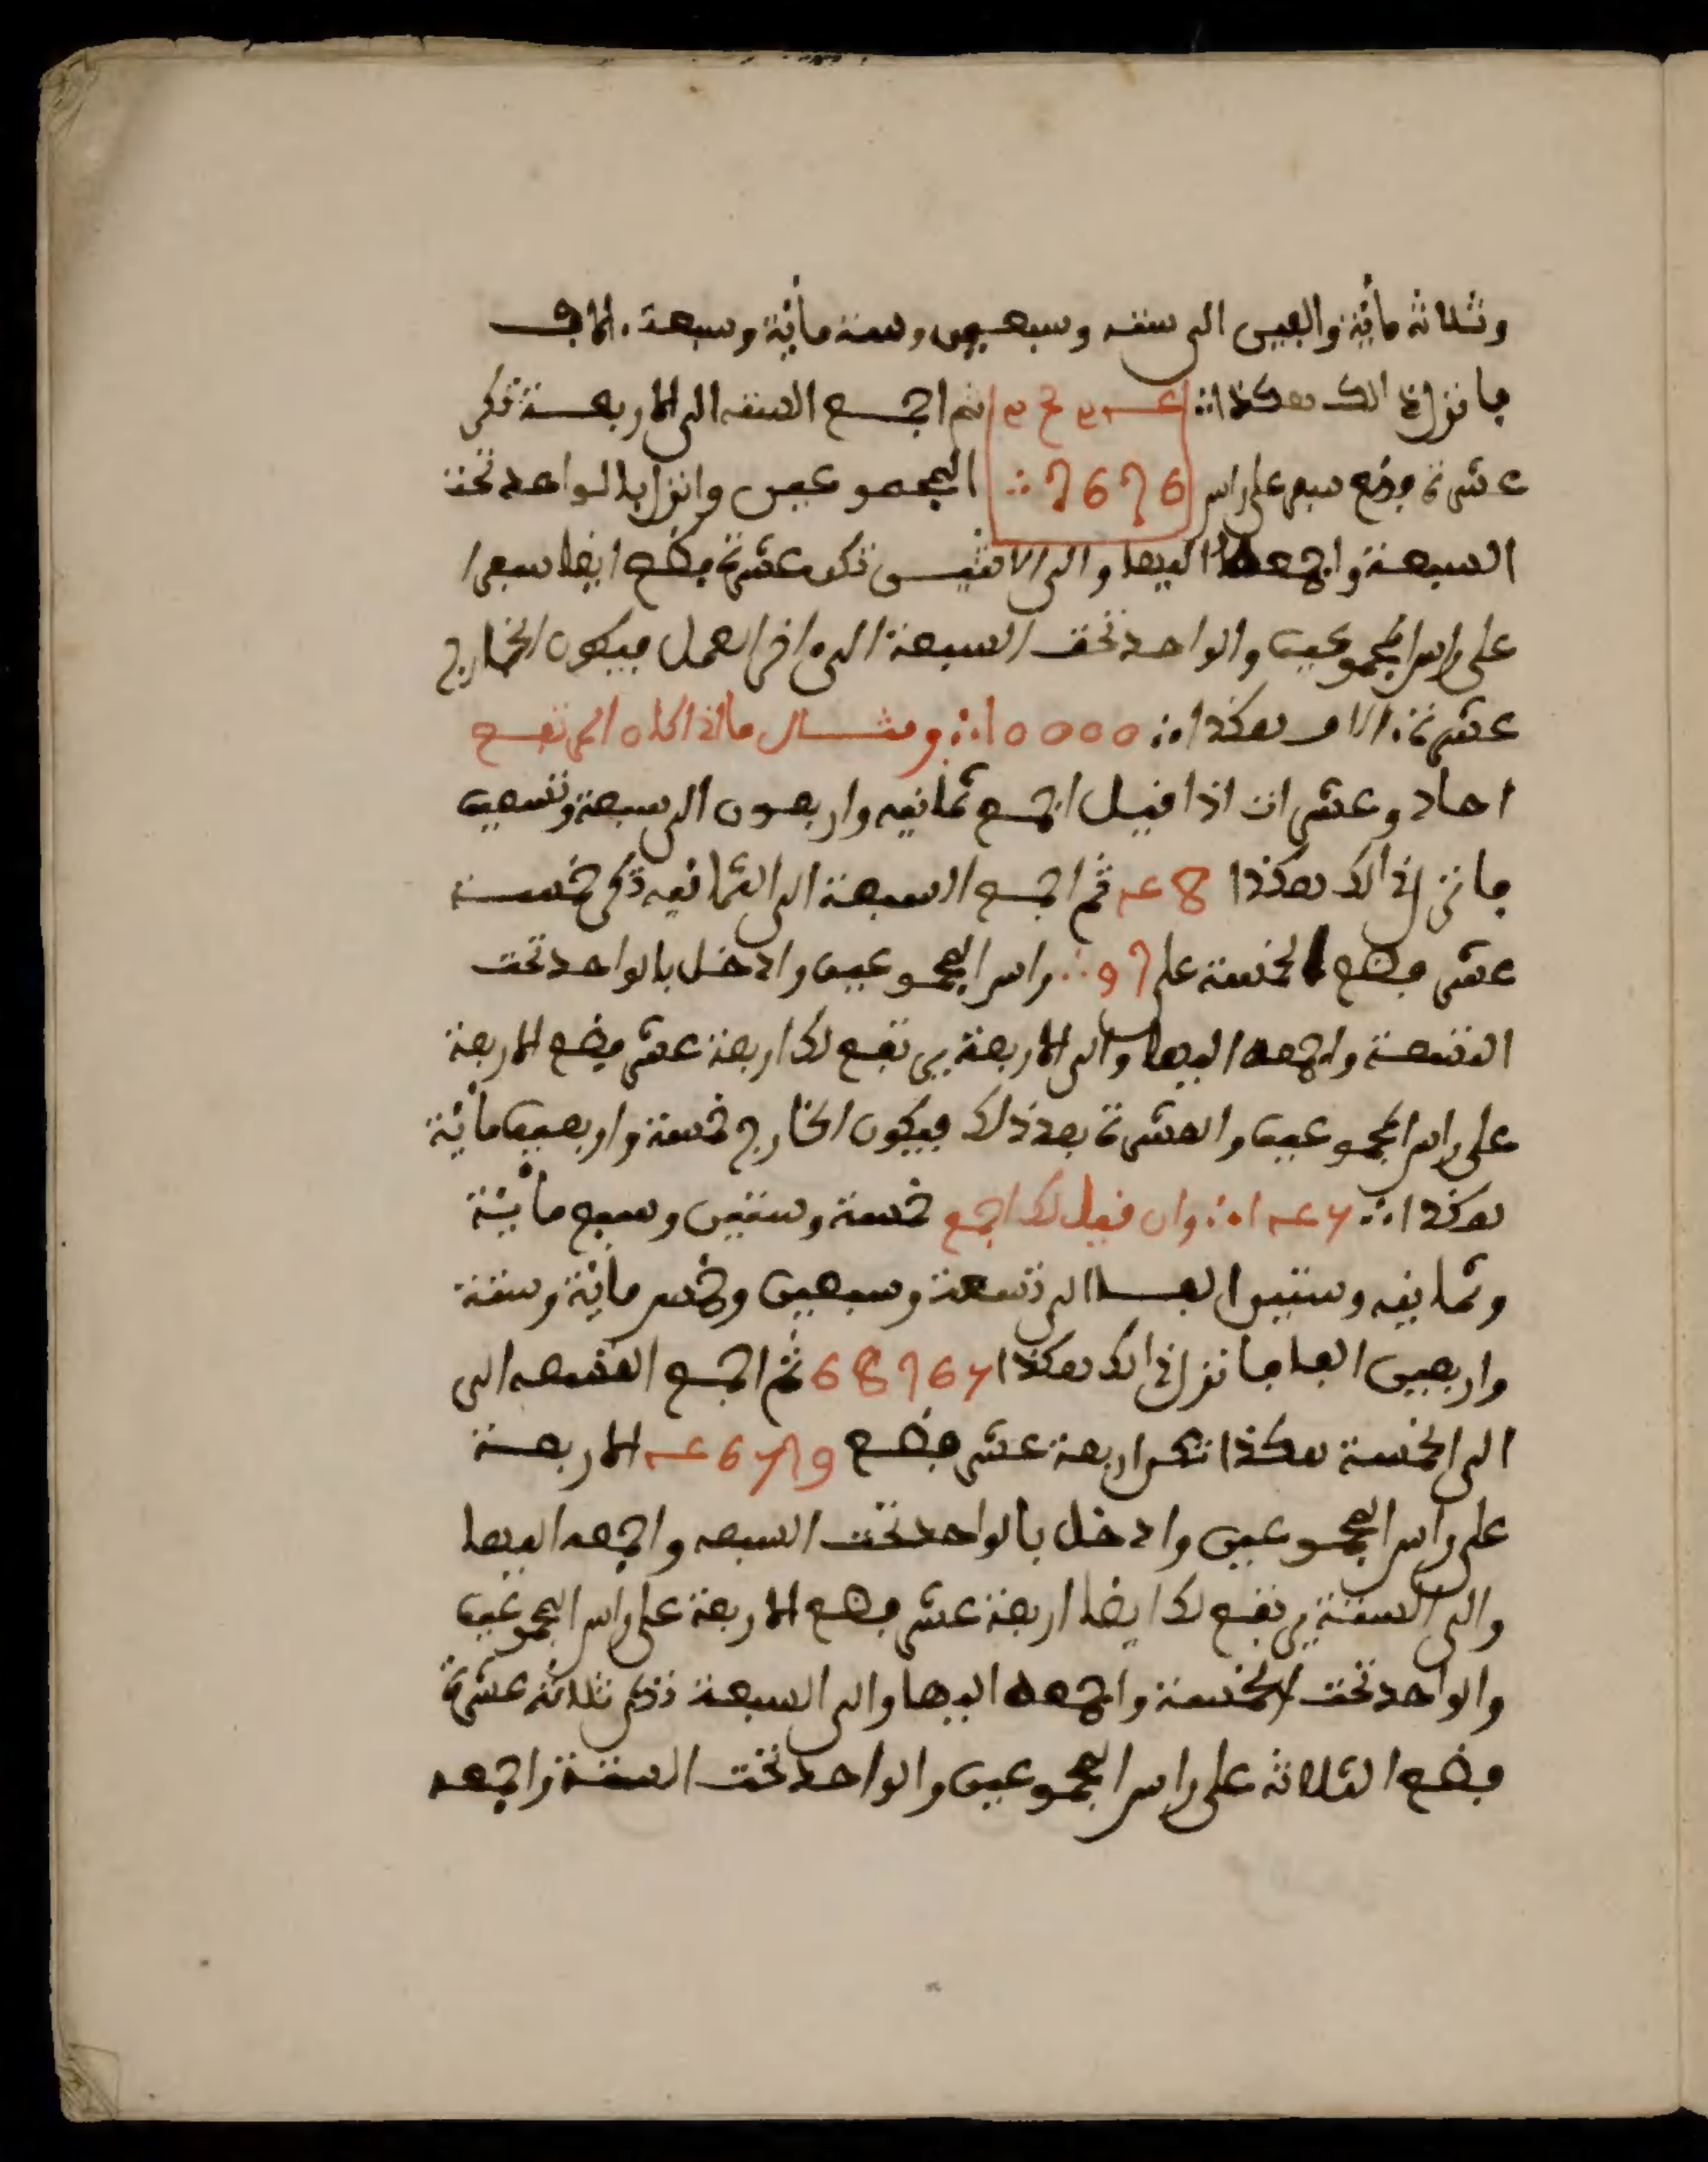 وثلاثة مأية والفين الى ستة وسبعين وستة مأية وسبعة ءالاف
فانزل ذالك هكذا ∴ ثم اجمع الستة الى الاربعة تكن
عشرة فضع سفرا على راس 7676 ∴ المجموعين وانزل بالواحد تحت
السبعة واجمعه اليها والى الاثنين تكون عشرة فضع ايضا سفرا
على راس المجموعين والواحد تحت السبعة الى ءاخر العمل فيكون الخارج
عشرة ءالاف هكذا ∴ 10000 ∴ ومثال ما اذا كان المرتفع
احاد وعشرات اذا قيل اجمع ثمانية واربعون الى سبعة وتسعين
فانزل ذالك هكذا 48 ثم اجمع السبعة الى الثمانية تكن خمسة
عشر فضع الخمسة على 97 ∴ راس المجموعين وادخل بالواحد تحت
التسعة واجمعه اليها والى الاربعة يرتفع لك اربعة عشر فضع الاربعة
على راس المجموعين والعشرة بعد ذلك فيكون الخارج خمسة واربعين مأية
هكذا ∴ 145 ∴ وان قيل لك اجمع خمسة وستين وسبع مأية
وثمانية وستين الفا الى تسعة وسبعين وخمس مأية وستة
واربعين الفا فانزل ذالك هكذا 68765 ثم اجمع التسعة الى
الى الخمسة هكذا تكن اربعة عشر فضع 46579 الاربعة
على راس المجموعين وادخل بالواحد تحت السبعة واجمعه اليها
والى الستة يرتفع لك ايضا اربعة عشر فضع الاربعة على راس المجموعين
والواحد تحت الخمسة واجمعه اليها والى السبعة تكن ثلاثة عشرة
فضع الثلاثة على راس المجموعين والواحد تحت الستة واجمعه